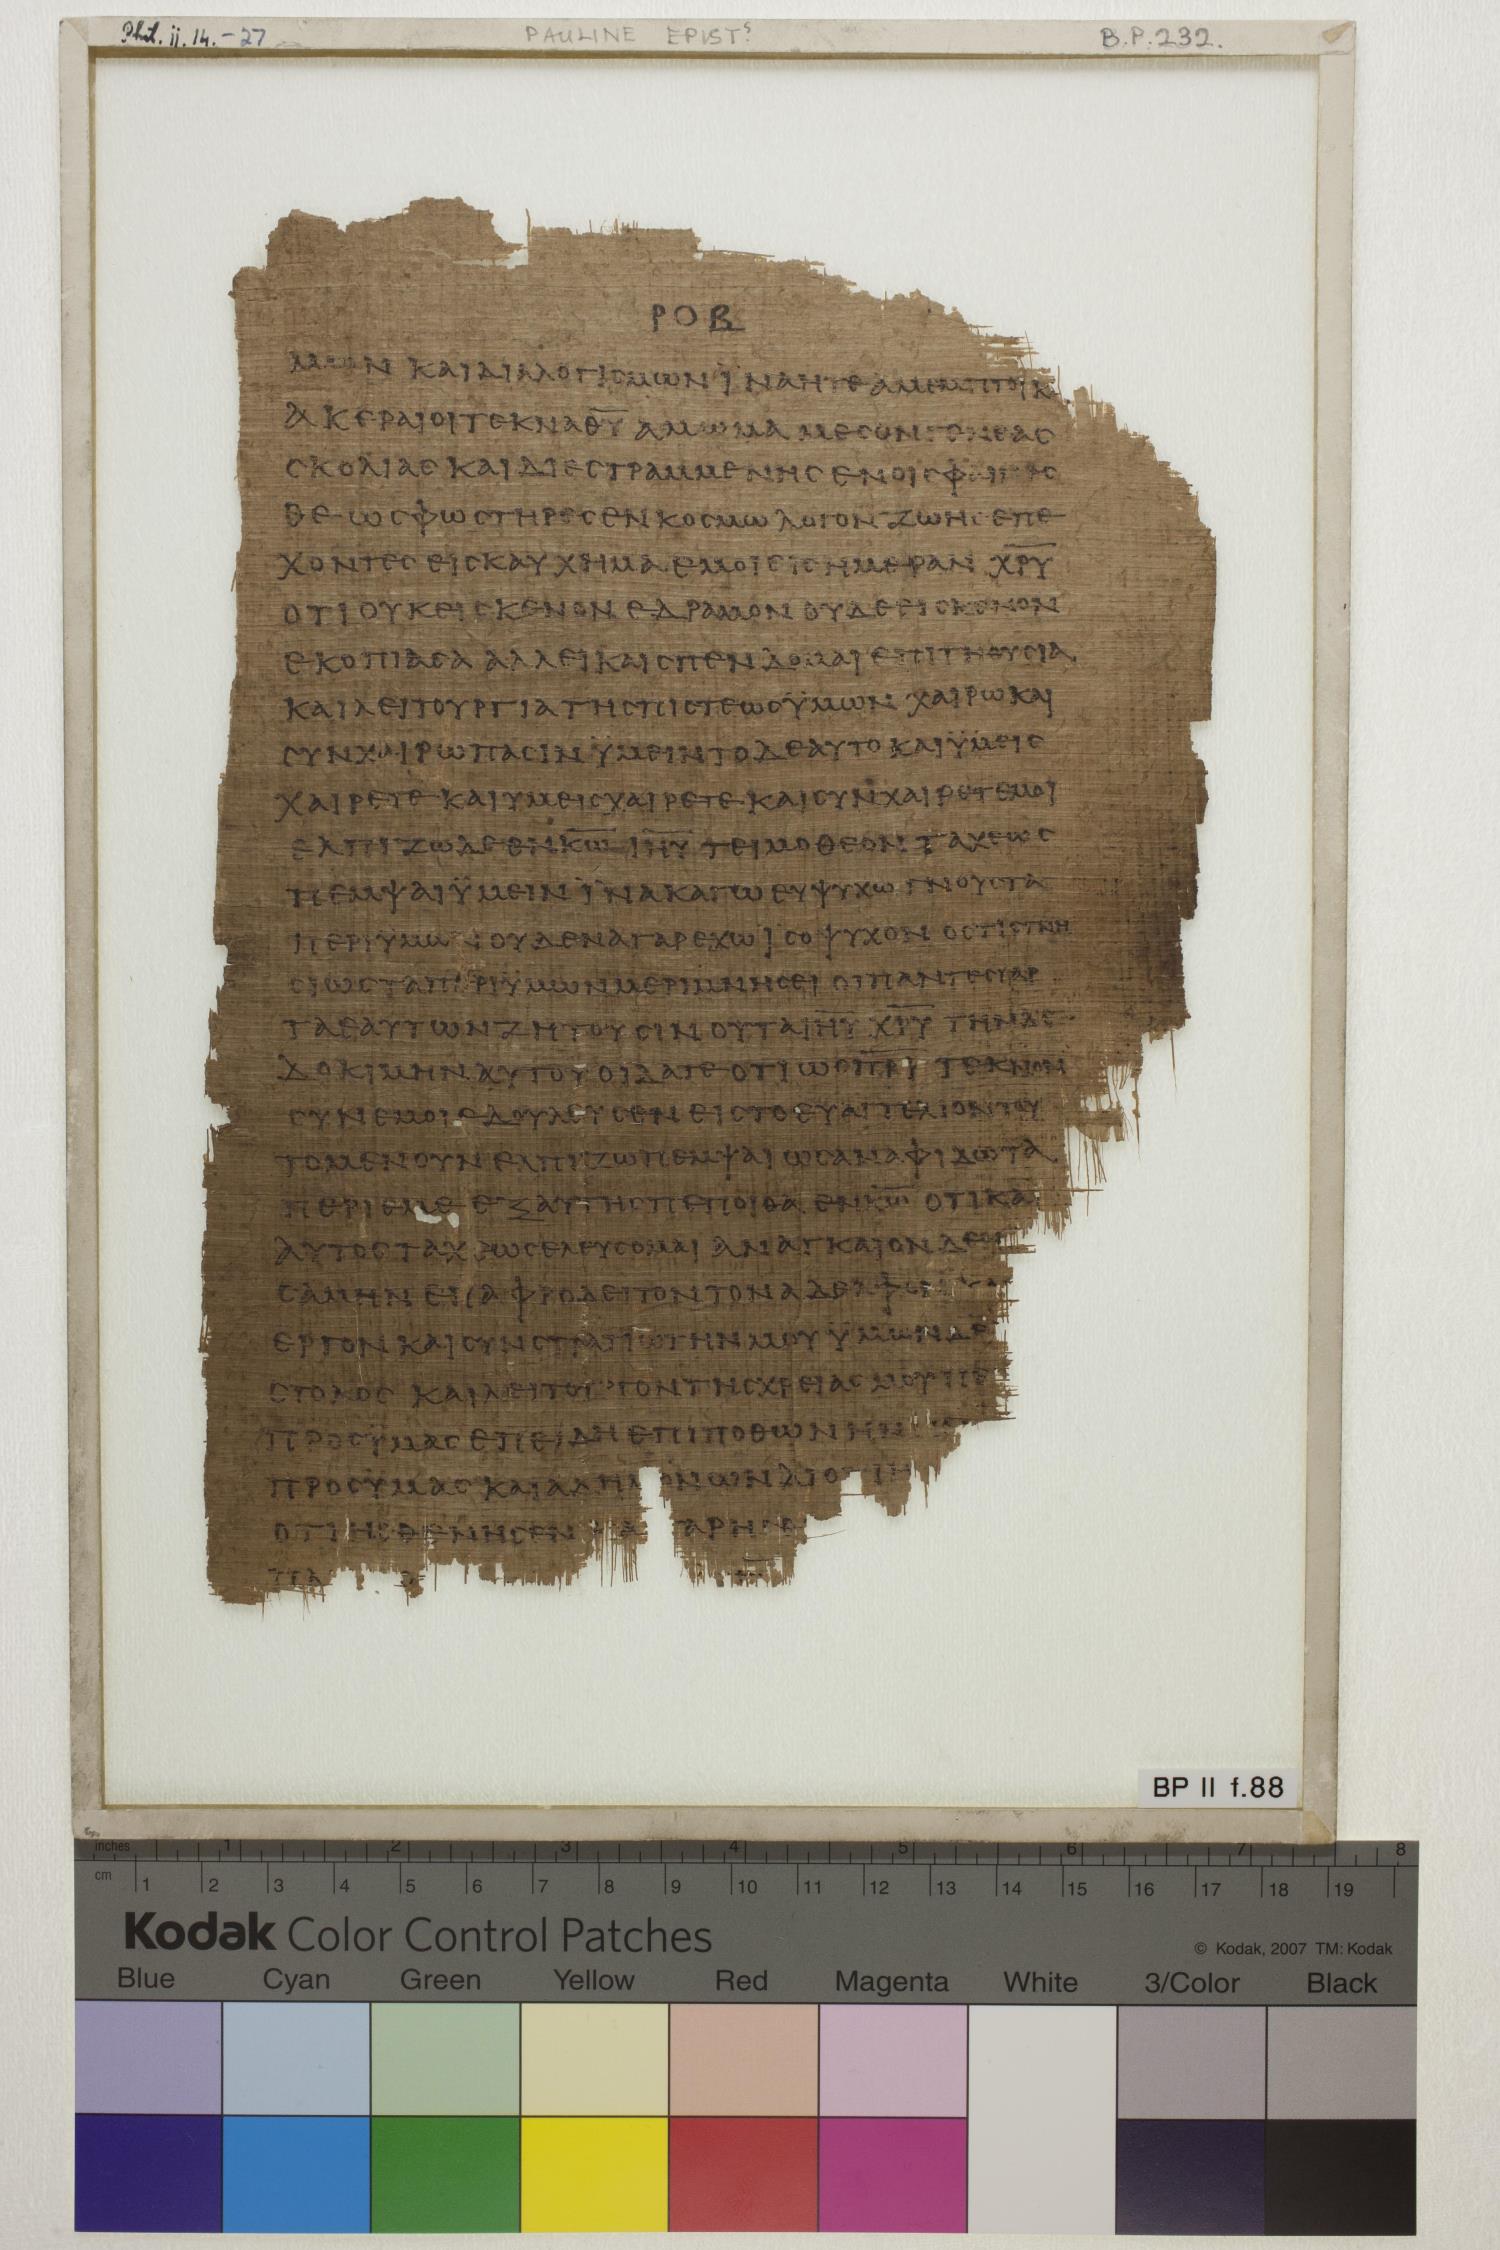 Phil. ii. 14.-27 PAULINE EPISTS B.P. 232.
ΡΟΒ
ΚΑΙ ΔΙΑΛΟΓΙϹΜΩΝ ΪΝΑ ΗΤΕ ΑΜΕΜΠΤΟΙ Κ
ΑΚΕΡΑΙΟΙ ΤΕΚΝΑ Θ̅Υ̅ ΑΜΩΜΑ ΜΕϹΟΝ ΓΕΝΕΑϹ
ϹΚΟΛΙΑϹ ΚΑΙ ΔΙΕϹΤΡΑΜΜΕΝΗϹ ΕΝ ΟΙϹ
ΘΕ ΩϹ ΦΩϹΤΗΡΕϹ ΕΝ ΚΟϹΜΩ ΛΟΓΟΝ ΖΩΗϹ ΕΠΕ
ΧΟΝΤΕϹ ΕΙϹ ΚΑΥΧΗΜΑ ΕΜΟΙ ΕΙϹ ΗΜΕΡΑΝ Χ̅Ρ̅Υ̅
ΟΤΙ ΟΥΚ ΕΙϹ ΚΕΝΟΝ ΕΔΡΑΜΟΝ ΟΥΔΕ ΕΙϹ ΚΕΝΟΝ
ΕΚΟΠΙΑϹΑ ΑΛΛ ΕΙ ΚΑΙ ϹΠΕΝΔΟΜΑΙ ΕΠΙ ΤΗ ΘΥϹΙΑ
ΚΑΙ ΛΕΙΤΟΥΡΓΙΑ ΤΗϹ ΠΙϹΤΕΩϹ ΫΜΩΝ ΧΑΙΡΩ ΚΑΙ
ϹΥΝΧΑΙΡΩ ΠΑϹΙΝ ΫΜΕΙΝ ΤΟ ΔΕ ΑΥΤΟ ΚΑΙ ΫΜΕΙϹ
ΧΑΙΡΕΤΕ ΚΑΙ ΥΜΕΙϹ ΧΑΙΡΕΤΕ ΚΑΙ ϹΥΝΧΑΙΡΕΤΕ ΜΟΙ
ΕΛΠΙΖΩ ΔΕ ΕΝ Κ̅Ω̅ Ι̅Η̅Υ̅ ΤΕΙΜΟΘΕΟΝ ΤΑΧΕΩϹ
ΠΕΜΨΑΙ ΫΜΕΙΝ ΪΝΑ ΚΑΓΩ ΕΥΨΥΧΩ ΓΝΟΥϹ ΤΑ
ΠΕΡΙ ΥΜΩ ΟΥΔΕΝΑ ΓΑΡ ΕΧΩ ΙϹΟΨΥΧΟΝ ΟϹΤΙϹ ΓΝΗ
ϹΙΩϹ ΤΑ ΠΕΡΙ ΫΜΩΝ ΜΕΡΙΜΝΗϹΕΙ ΟΙ ΠΑΝΤΕϹ ΓΑΡ
ΤΑ ΕΑΥΤΩΝ ΖΗΤΟΥϹΙΝ ΟΥ ΤΑ Ι̅Η̅Υ̅ Χ̅Ρ̅Υ̅ ΤΗΝ ΔΕ
ΔΟΚΙΜΗΝ ΑΥΤΟΥ ΟΙΔΑΤΕ ΟΤΙ ΩϹ Π̅Ρ̅Ι̅ ΤΕΚΝΟΝ
ϹΥΝ ΕΜΟΙ ΕΔΟΥΛΕΥϹΕΝ ΕΙϹ ΤΟ ΕΥΑΓΓΕΛΙΟΝ ΤΟΥ
ΤΟ ΜΕΝ ΟΥΝ ΕΛΠΙΖΩ ΠΕΜΨΑΙ ΩϹ ΑΝ ΑΦΙΔΩ ΤΑ
ΠΕΡΙ ΕΜΕ ΕΞΑΥΤΗϹ ΠΕΠΟΙΘΑ ΕΝ Κ̅Ω̅ ΟΤΙ ΚΑΙ
ΑΥΤΟϹ ΤΑΧΕΩϹ ΕΛΕΥϹΟΜΑΙ ΑΝΑΓΚΑΙΟΝ ΔΕ
ϹΑΜΗΝ ΕΠΑΦΡΟΔΕΙΤΟΝ ΤΟΝ ΑΔΕΛΦΟΝ
ΕΡΓΟΝ ΚΑΙ ϹΥΝϹΤΡΑΤΙΩΤΗΝ ΜΟΥ ΫΜΩΝ ΔΕ
ϹΤΟΛΟϹ ΚΑΙ ΛΕΙΤΟΥΡΓΟΝ ΤΗϹ ΧΡΕΙΑϹ ΜΟΥ ΠΕ
ΠΡΟϹ ΫΜΑϹ ΕΠΕΙΔΗ ΕΠΙΠΟΘΩΝ ΗΝ
ΠΡΟϹ ΫΜΑϹ ΚΑΙ ΑΔΗΜΟΝΩΝ ΔΙΟΤΙ Η
ΟΤΙ ΗϹΘΕΝΗϹΕΝ ΚΑΙ ΓΑΡ ΗϹΘΕ
ΠΑΡ
BP II f.88
inches 1 2 3 4 5 6 7 8
cm 1 2 3 4 5 6 7 8 9 10 11 12 13 14 15 16 17 18 19
Kodak Color Control Patches
© Kodak, 2007 TM: Kodak
Blue Cyan Green Yellow Red Magenta White 3/Color Black